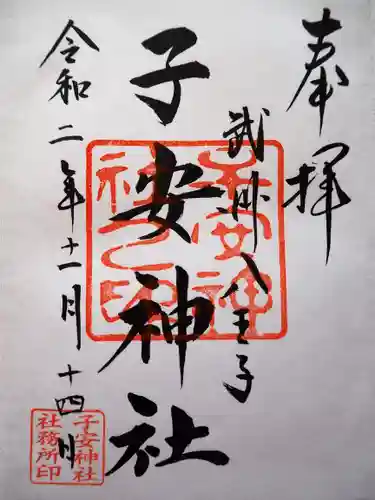 奉拝
武州八王子
子安神社
令和二年十一月十四日
子安神社之印
子安神社
社務所印